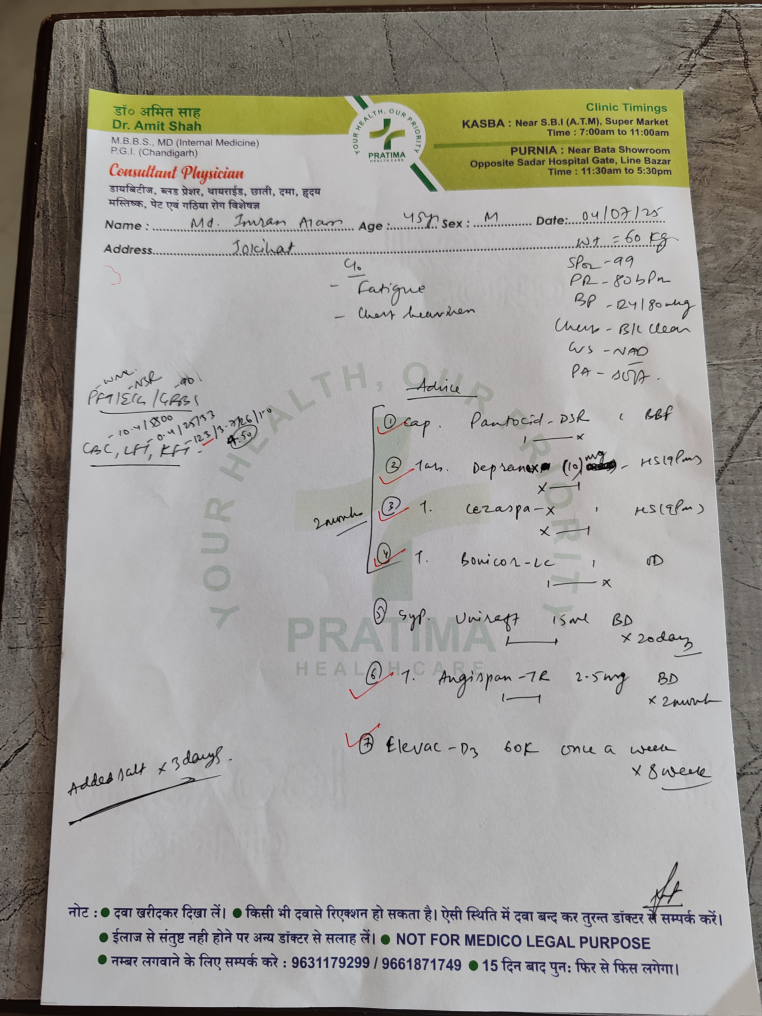 डॉ० अमित साह
Dr. Amit Shah
M.B.B.S., MD (Internal Medicine)
P.G.I. (Chandigarh)
Consultant Physician
डायबिटीज, ब्लड प्रेशर, थायराईड, छाती, दमा, हृदय
मस्तिष्क, पेट एवं गठिया रोग विशेषज्ञ
YOUR HEALTH, OUR PRIORITY
PRATIMA
HEALTH CARE
Clinic Timings
KASBA : Near S.B.I (A.T.M), Super Market
Time : 7:00am to 11:00am
PURNIA : Near Bata Showroom
Opposite Sadar Hospital Gate, Line Bazar
Time : 11:30am to 5:30pm
Name : Md. Imran Alam Age : 45y Sex : M Date: 04/07/25
Address Jokihat
Wt = 60 kg
SPO2 - 99
PR - 80bpm
BP - 124/80mmHg
Chest - B/L Clean
CVS - NAD
PA - Soft.
C/o
- Fatigue
- Chest heaviness
- NSR
PFT/ECG/GRBS
- 10.4/8800
CBC, LFT, KFT
Advice
① Cap. Pantocid-DSR BBF
1 x
② Tab. (10) mg - HS (9pm)
x 1
③ T. HS (9pm)
x 1
④ T. Bonicor-LC OD
1 x
2 month
⑤ Syp. 15ml BD
1 1
x 20 days
⑥ T. Angispan-TR 2.5mg BD
1 1
x 2 month
⑦ Elevac-D3 60K once a week
x 8 week
Added salt x 3 days.
YOUR HEALTH, OUR PRIORITY
PRATIMA
HEALTH CARE
नोट : ● दवा खरीदकर दिखा लें। ● किसी भी दवासे रिएक्शन हो सकता है। ऐसी स्थिति में दवा बन्द कर तुरन्त डॉक्टर से सम्पर्क करें।
● ईलाज से संतुष्ट नही होने पर अन्य डॉक्टर से सलाह लें। ● NOT FOR MEDICO LEGAL PURPOSE
● नम्बर लगवाने के लिए सम्पर्क करे : 9631179299 / 9661871749 ● 15 दिन बाद पुन: फिर से फिस लगेगा।